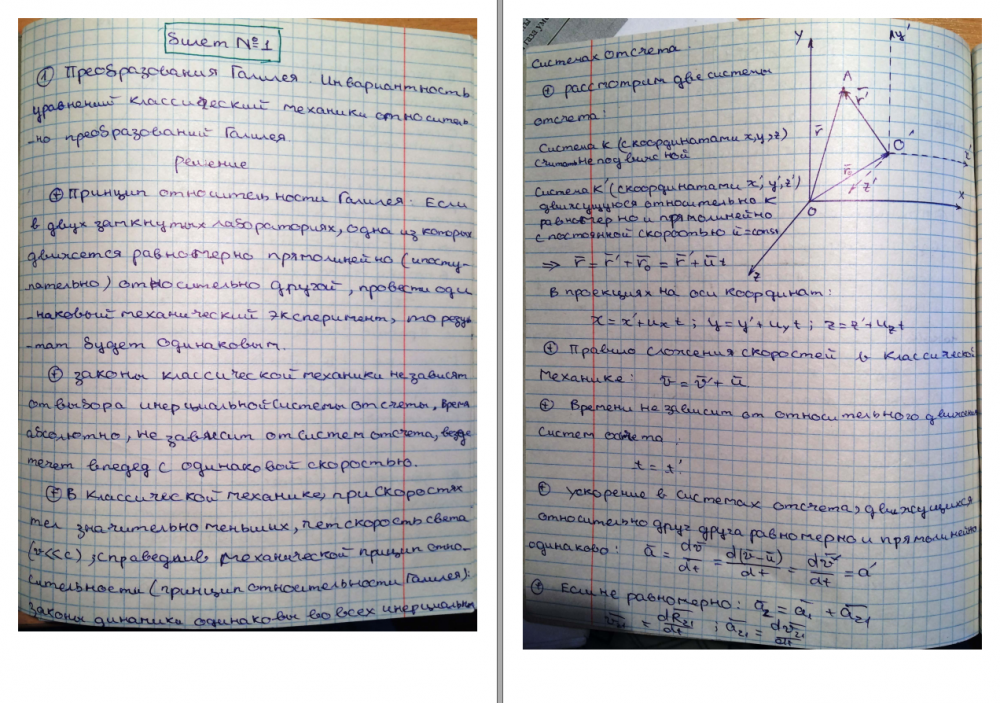 Билет №1
① Преобразования Галилея. Инвариантность
уравнений классический механики относитель
-но преобразований Галилея.
Решение
⊕ Принцип относительности Галилея: Если
в двух замкнутых лабораториях, одна из которых
движется равномерно прямолинейно (и посту-
пательно) относительно другой, провести оди
-наковый механический эксперимент, то резуль
-тат будет одинаковым.
⊕ законы классической механики не зависят
от выбора инерциальной системы отсчеты, время
абсолютно, не зависит от систем отсчета, везде
течет вперед с одинаковой скоростью.
⊕ В классической механике, при скоростях
тел значительно меньших, чем скорость света
(v<<c), справедлив механической прицип отно-
сительности (принцип относительности Галилея):
Законы динамики одинаковы во всех инерциальны
системах отсчета.
⊕ рассмотрим две системы
отсчета:
Система K (с координатами x,y,z)
считать неподвижной
Система K' (с координатами x', y', z')
движущуюся относительно K
равномерно и прямолинейно
с постоянной скоростью ū=const
y
y'
A
r̄'
r̄
O'
r̄₀
z'
x
O
z
⇒ r̄ = r̄' + r̄₀ = r̄' + ūt
В проекциях на оси координат:
x = x' + uₓt ; y = y' + u_y t ; z = z' + u_z t
⊕ Правило сложения скоростей в классической
механике: v̄ = v̄' + ū
⊕ Времени не зависит от относительного движения
систем отсчета:
t = t'
⊕ ускорение в системах отсчета, движущихся
относительно друг друга равномерно и прямолинейно
одинаково: ā = dv̄/dt = d(v-ū)/dt = dv̄'/dt = a'
⊕ Если не равномерно: ā₂ = ā₁ + ā₂₁
v̄₂₁ = dR̄₂₁/dt ; ā₂₁ = dv̄₂₁/dt